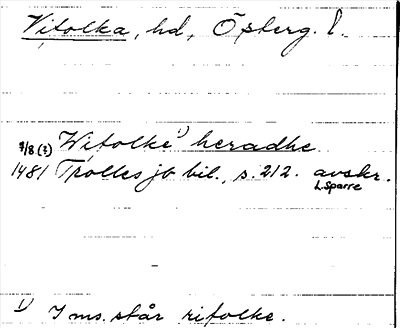 Vifolka, hd, Östberg. l.
7/8 (?) Wifolke 1) heradhe
1481 Trolles jb bil., s. 212. avskr.
L Sparre
1) I ms. står rifolke.